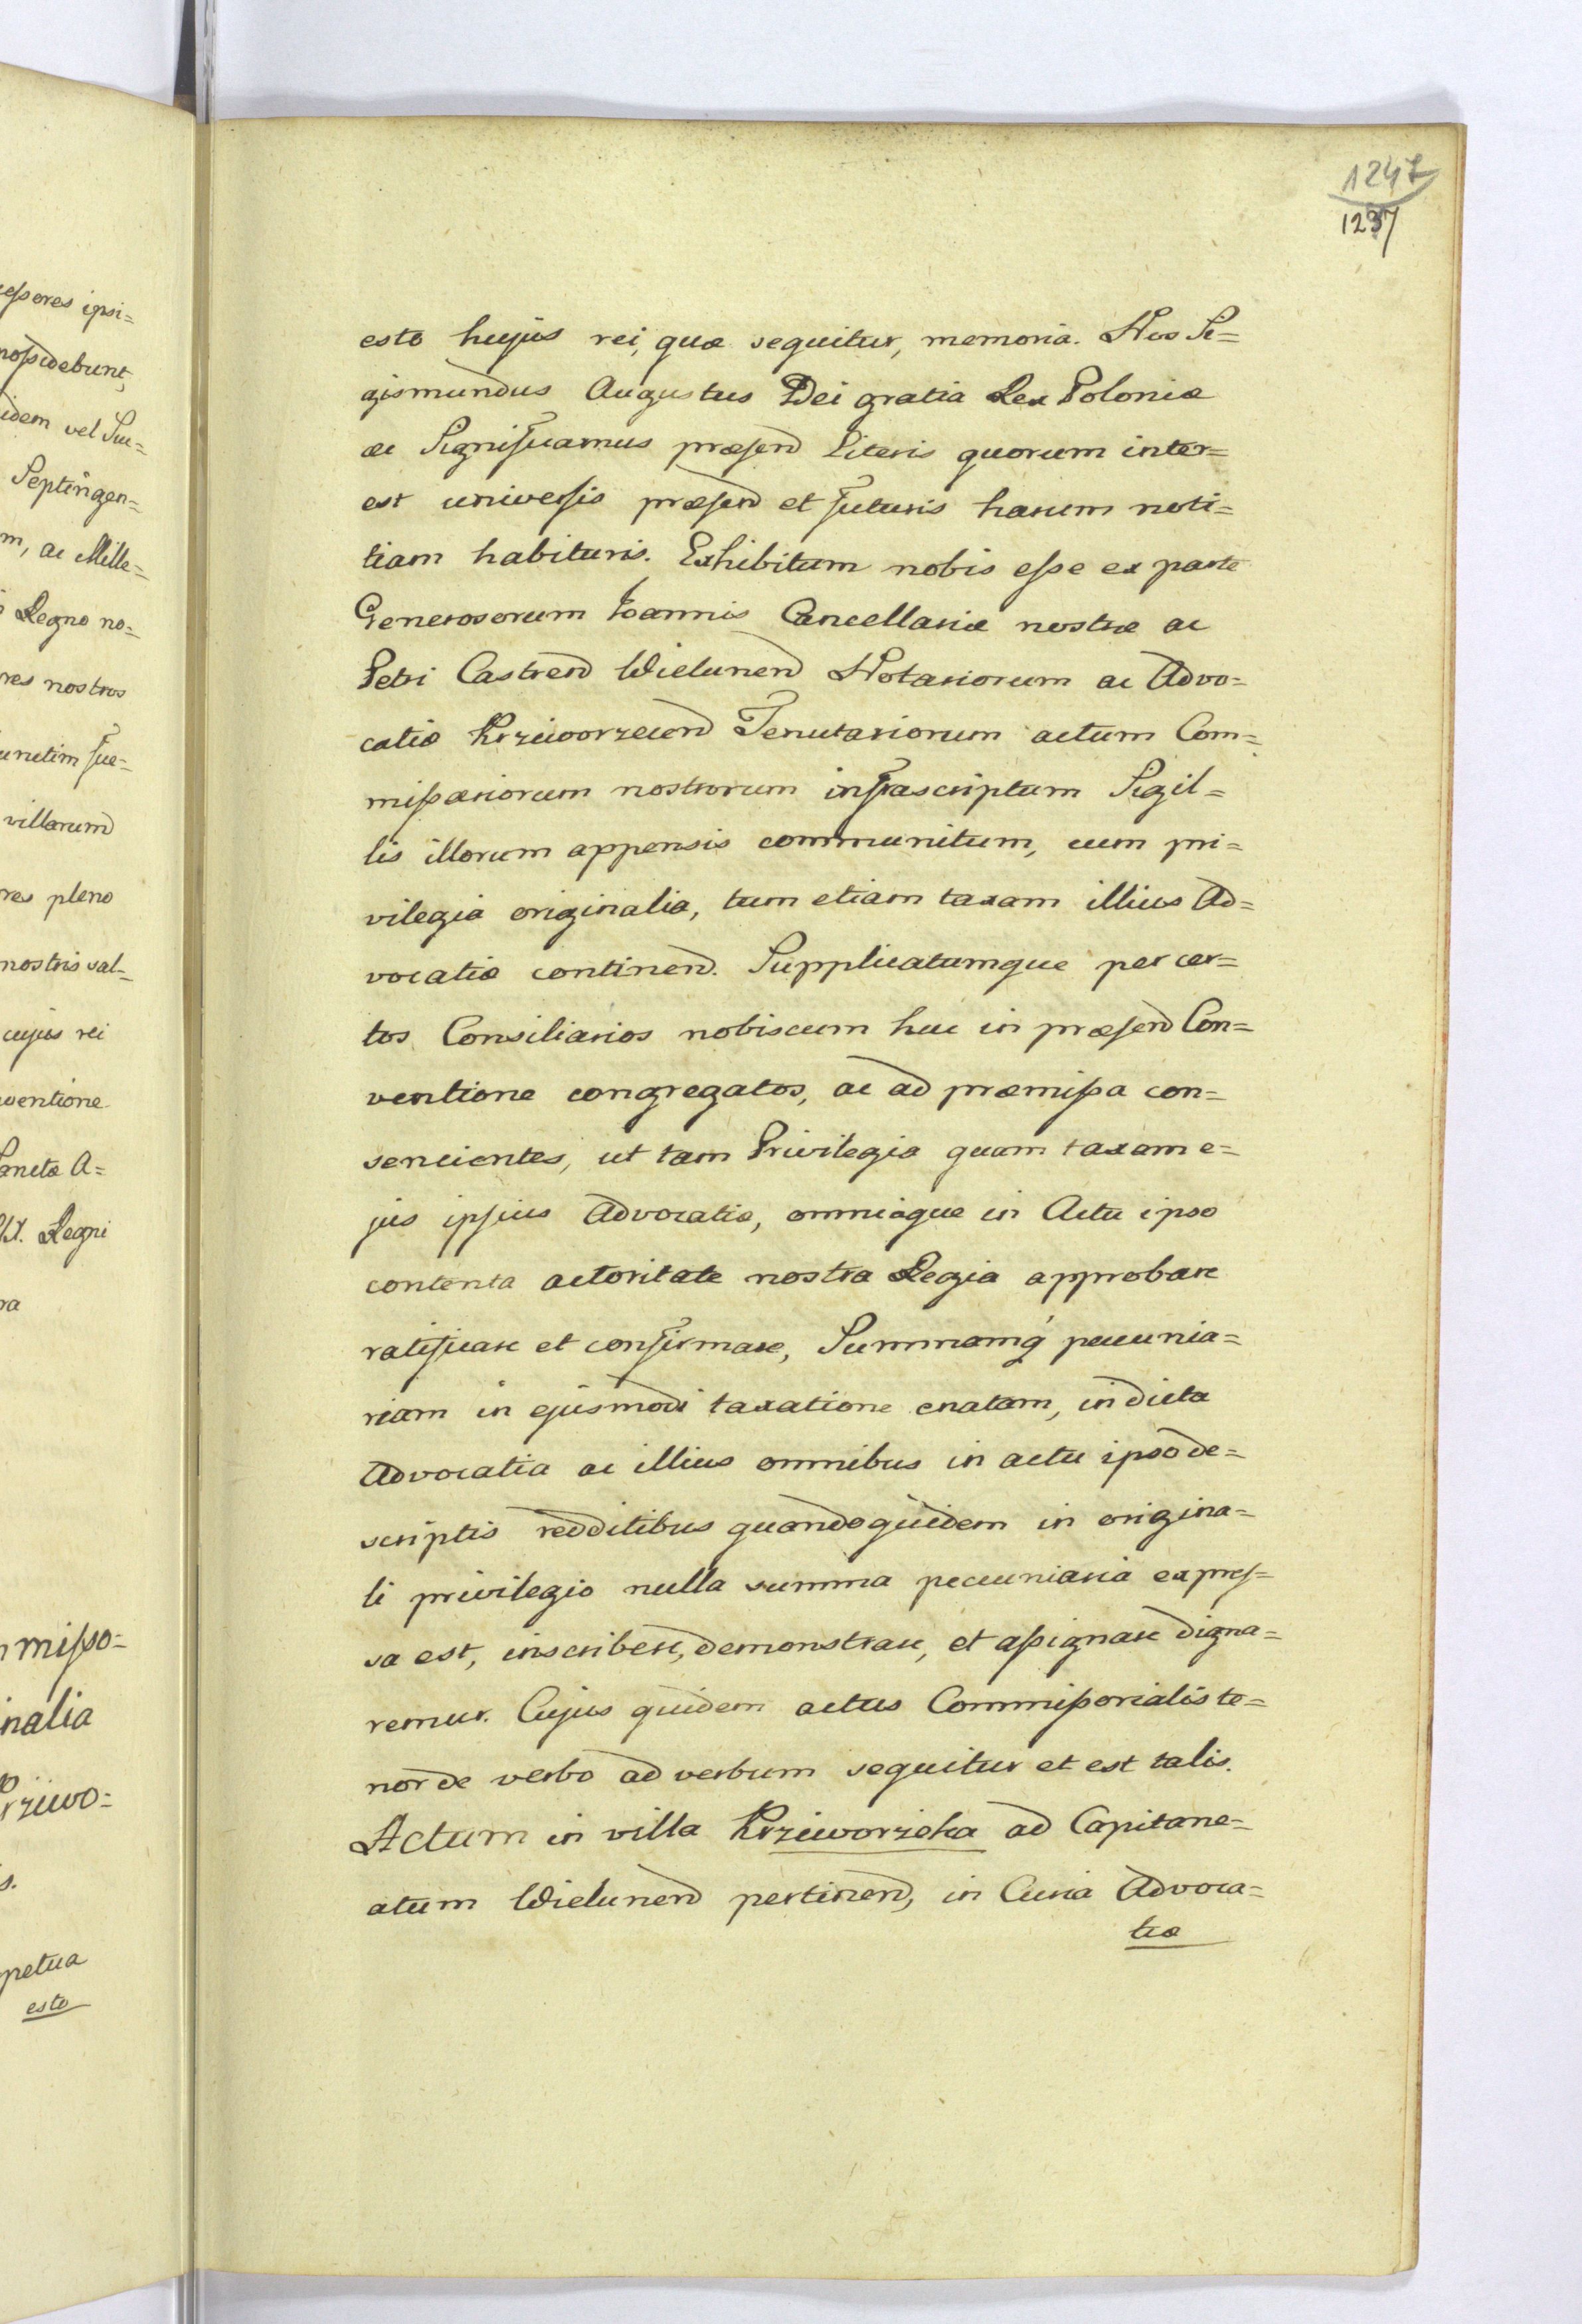 1247
1237
esto hujus rei, quæ sequitur, memoria. Nos Si=
gismundus Augustus Dei gratia Rex Poloniæ
ac Significamus præsend literis quorum inter=
est universis præsend et futuris harum noti=
tiam habituris. Exhibitum nobis esse ex parte
Generosorum Joannis Cancellariæ nostræ ac
Petri Castrend Wielunend Notariorum ac Advo=
catiæ Krziworzecend Tenutariorum actum Com=
missariorum nostrorum infrascriptum Sigil=
lis illorum appensis communitum, cum pri=
vilegia originalia, tum etiam taxam illius Ad=
vocatiæ continend. Supplicatumque per cer=
tos Consiliarios nobiscum huc in præsend Con=
ventione congregatos, ac ad præmissa con=
sencientes, ut tam Privilegia quam taxam e=
jus ipsius Advocatiæ, omniaque in Actu ipso
contenta actoritate nostra Regia approbare
ratificare et confirmare, Summamq́ pecunia=
riam in ejusmodi taxatione enatam, in dicta
Advocatia ac illius omnibus in actu ipso de=
scriptis redditibus quandoquidem in origina=
li privilegio nulla summa pecuniaria expres=
sa est, inscribere, demonstrare, et assignare digna=
remur. Cujus quidem actus Commissorialis te=
nor de verbo ad verbum sequitur et est talis.
Actum in villa Krziworzeka ad Capitane=
atum Wielunend pertinend, in Curia Advoca=
tiæ
essores ipsi=
possidebunt,
idem vel Suc=
Septingen=
m, ac Mille=
Regno no=
res nostros
unctim fue=
villarum
res pleno
nostris sal=
cujus rei
ventione
Sancta A=
Regni
ra
mmisso=
inalia
rziwo=
s.
petua
esto